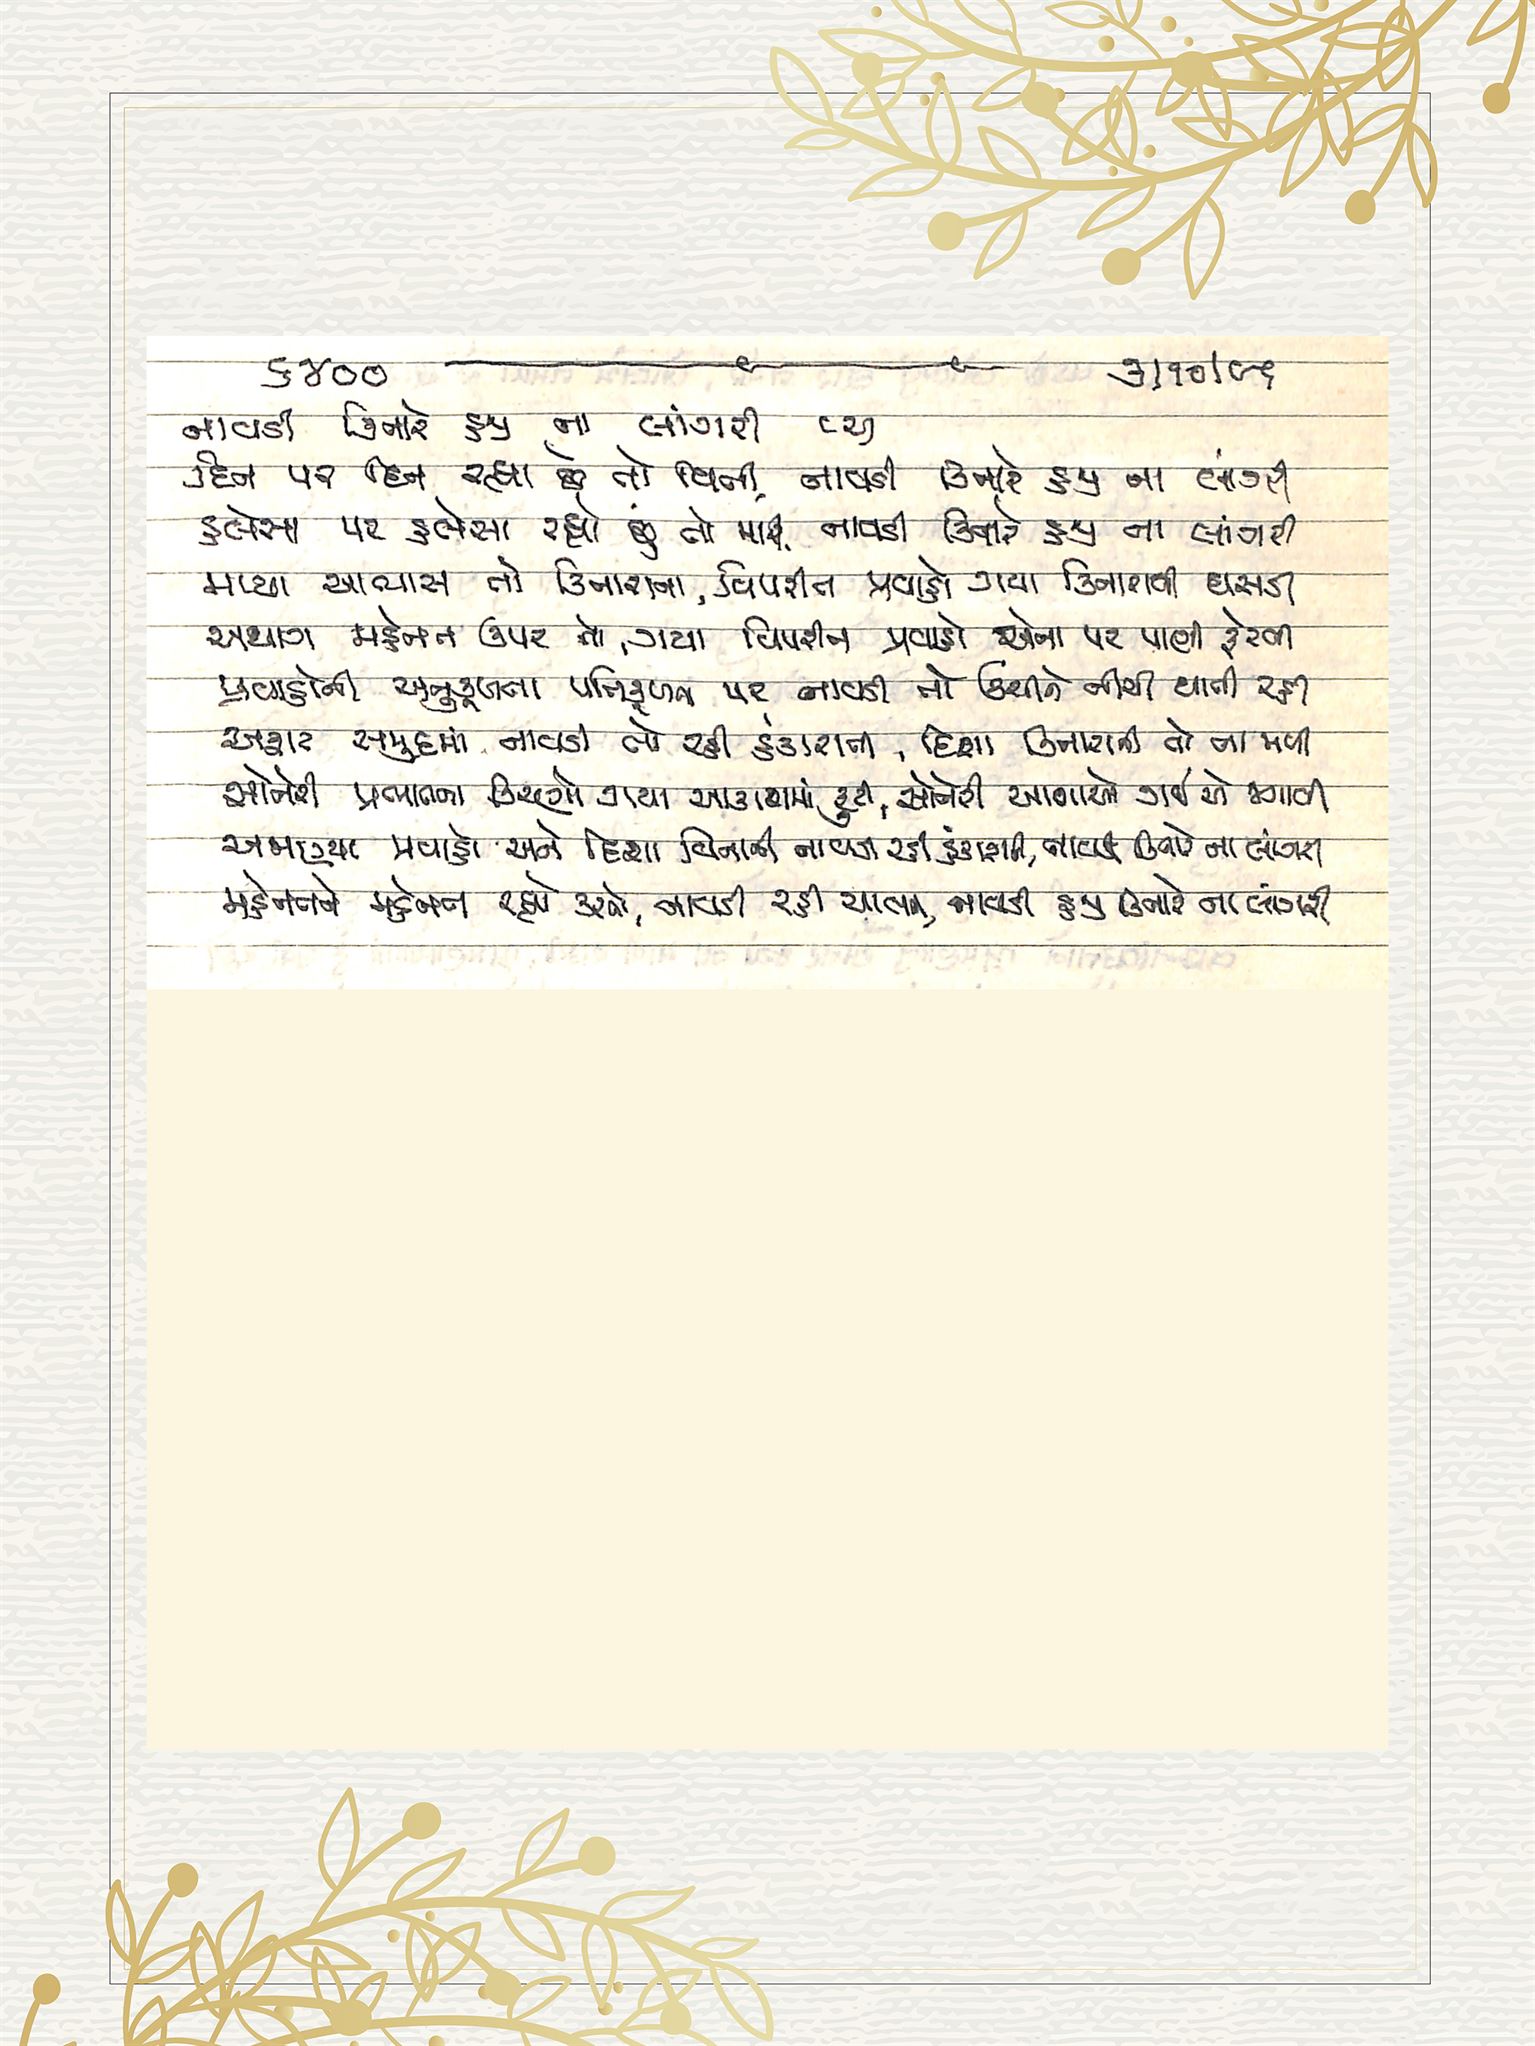 ૬૪૦૦ ૩/૧૦/૮૬
નાવડી કિનારે હજુ ના લાંગરી (૨)
દિન પર દિન રહ્યા છે તો વિતી, નાવડી કિનારે હજુ ના લાંગરી
હલેસા પર હલેસા રહ્યો છું તો મારી, નાવડી કિનારે હજુ ના લાંગરી
મથ્યા આવ્યાસ તો કિનારાના, વિપરીત પ્રવાહો ગયા કિનારાથી ઘસડી
અથાગ મહેનત ઉપર તો, ગયા વિપરીત પ્રવાહો એના પર પાણી ફેરવી
પ્રવાહોની અનુકૂળતા પ્રતિકૂળતા પર, નાવડી તો ઉંચીને નીચી થાતી રહી
અફાટ સમુદ્રમાં નાવડી તો રહી હંકારાતી, દિશા કિનારાની તો ના મળી
સોનેરી પ્રભાતના કિરણો ગયા આકાશમાં ફુટી, સોનેરી આશાઓ ગઈ એ જગાવી
અજાણ્યા પ્રવાહો અને દિશા વિનાની નાવડી રહી હંકારાતી, નાવડી કિનારે ના લાંગરી
મહેનતને મહેનત રહ્યો કરતો, નાવડી રહી ચાલતી, નાવડી હજુ કિનારે ના લાંગરી